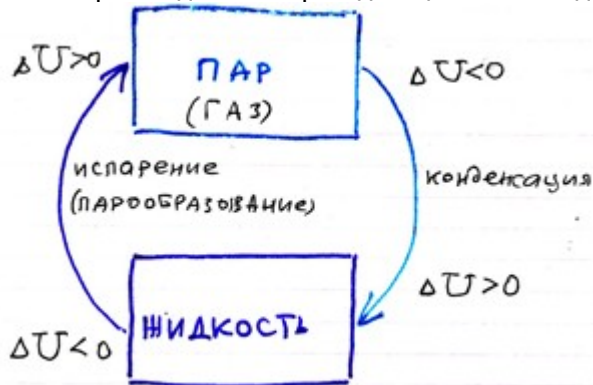 ΔU>0
ПАР
(ГАЗ)
ΔU<0
испарение
(ПАРООБРАЗОВАНИЕ)
конденсация
ЖИДКОСТЬ
ΔU>0
ΔU<0